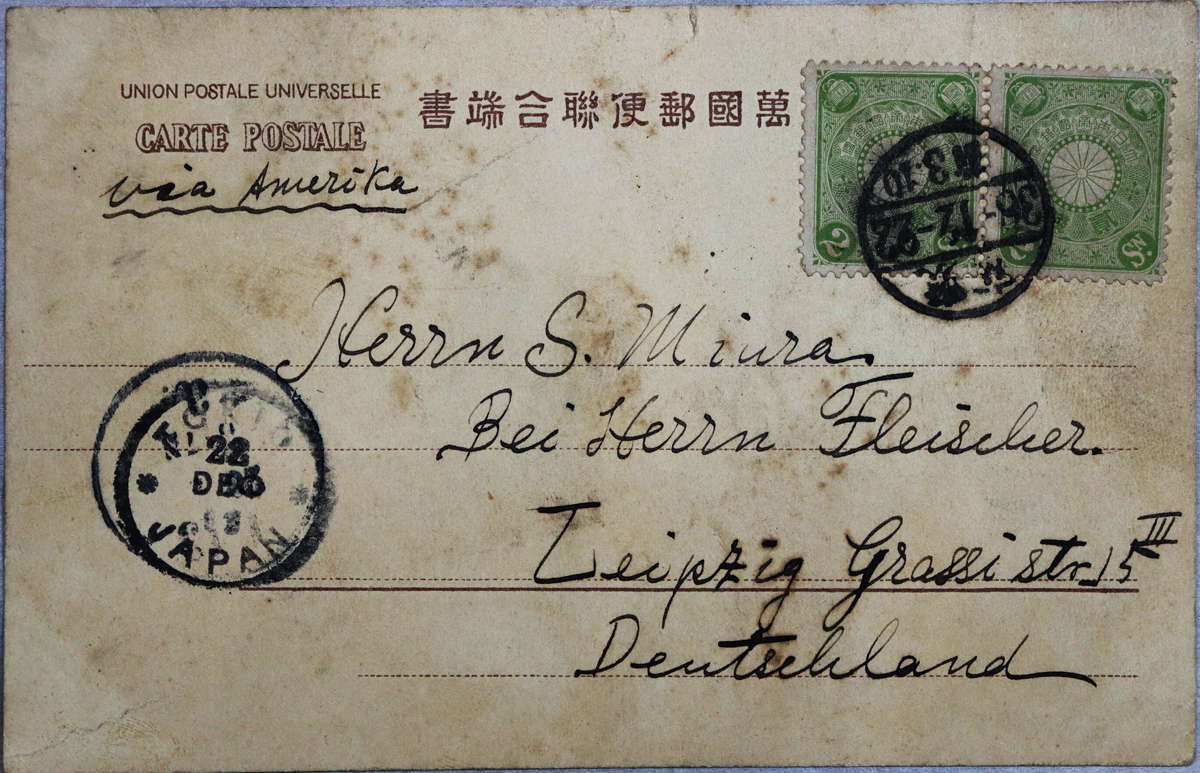 UNION POSTALE UNIVERSELLE
CARTE POSTALE
書端合聯便郵國萬
via Amerika
2
2
Sn.
36-12-22
3·10
Herrn S. Miura.
Bei Herrn Fleischer.
Leipzig Grassistr. 15 III
Deutschland
TOKIO
22
DEC
JAPAN